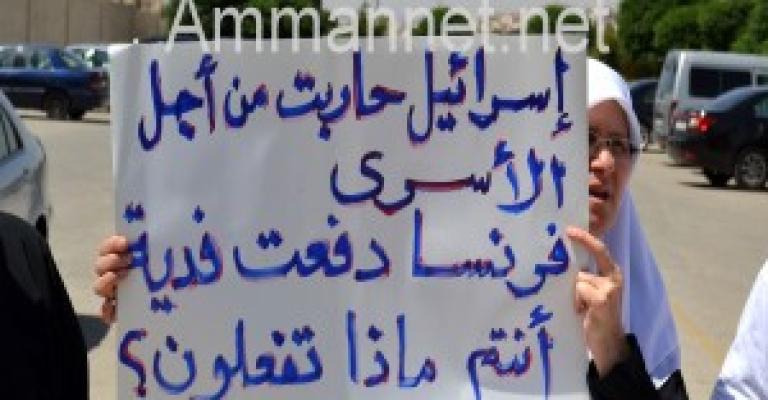 Ammannet.net
إسرائيل حاربت من أجل
الأسرى
فرنسا دفعت فدية
أنتم ماذا تفعلون؟